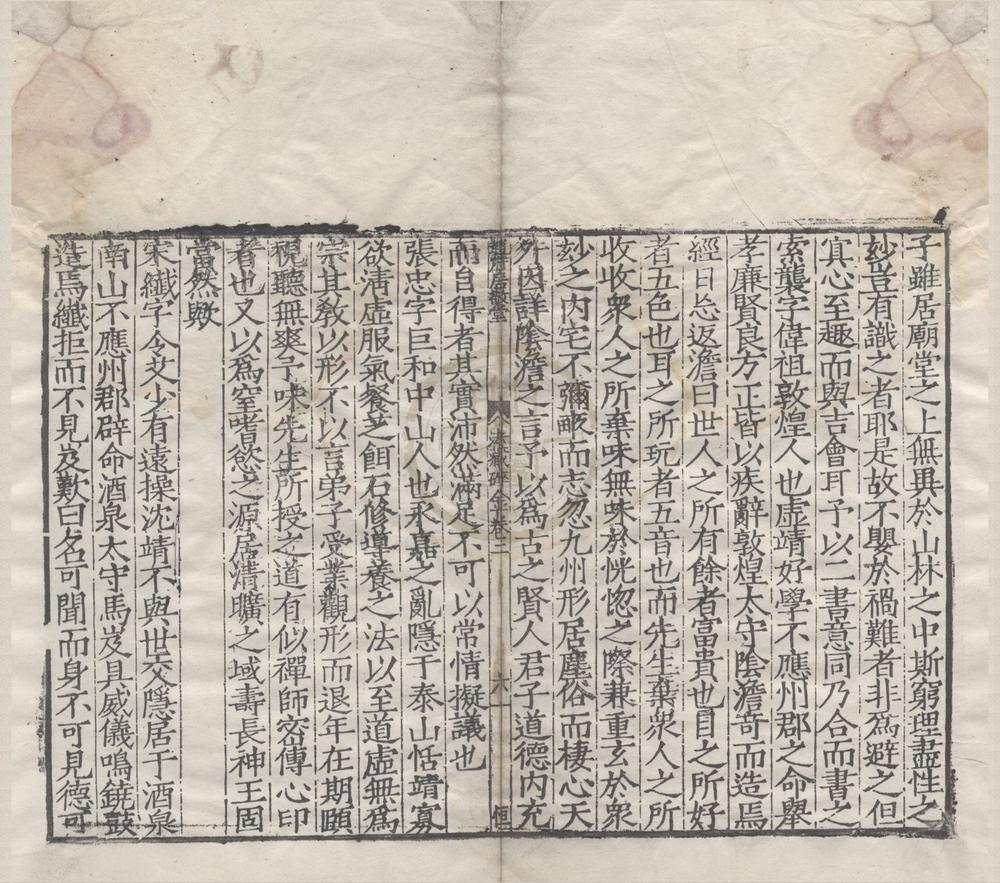 子雖居廟堂之上無異於山林之中斯窮理盡性之
玅豈有識之者耶是故不嬰於禍難者非爲避之但
冝心至趣而與吉會耳予以二書意同乃合而書之
索襲字偉祖敦煌人也虛靖好學不應州郡之命舉
孝廉賢良方正皆以疾辭敦煌太守陰澹奇而造焉
經日忘返澹曰世人之所有餘者富貴也目之所好
者五色也耳之所玩者五音也而先生棄衆人之所
收收衆人之所棄味無味於恍惚之際兼重玄於衆
玅之内宅不彌畝而志忽九州形居塵俗而棲心天
外因詳陰澹之言予以爲古之賢人君子道德内充
而自得者其實沛然滿足不可以常情擬議也
張忠字巨和中山人也永嘉之亂隱于泰山恬靖寡
欲淸虛服氣餐芝餌石修導養之法以至道虛無爲
宗其敎以形不以言弟子受業觀形而退年在期頤
視聽無爽予味先生所授之道有似禪師密傳心印
者也又以爲窒嗜慾之源居淸曠之域壽長神王固
當然歟
宋纖字令艾少有遠操沈靖不與世交隱居于酒泉
南山不應州郡辟命酒泉太守馬岌具威儀鳴鐃鼓
造焉纖拒而不見岌歎曰名可聞而身不可見德可